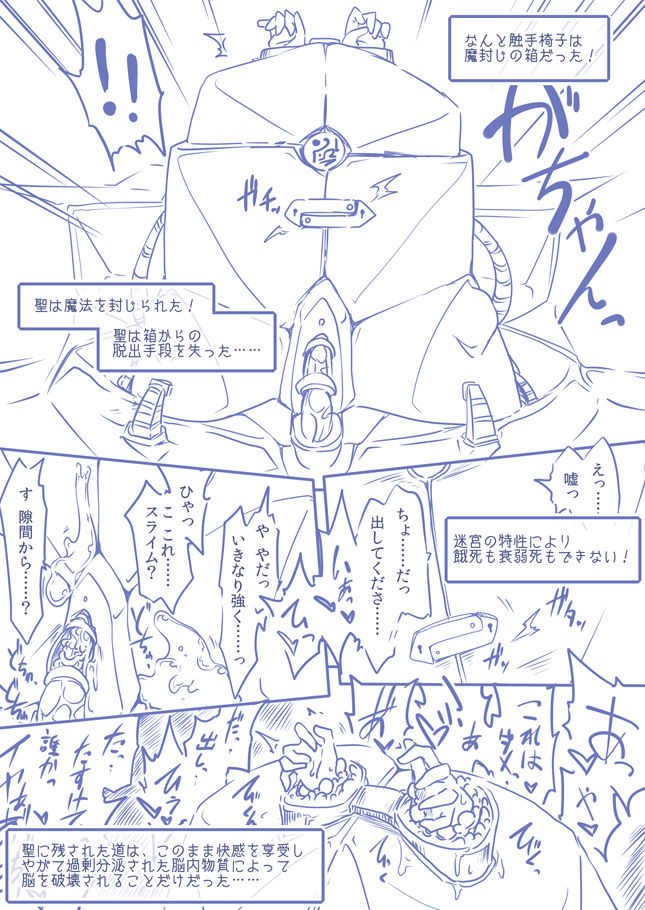 なんと触手椅子は
魔封じの箱だった！
!!
がちゃんっ
ガチッ
聖は魔法を封じられた！
聖は箱からの
脱出手段を失った……
えっ……
嘘っ
迷宮の特性により
餓死も衰弱死もできない！
ちょ……だっ
出してくださ……
ガタッ
ガッ
や やだっ
いきなり強く……っ
ひゃっ
こ これ……
スライム？
す 隙間から……？
これは
ダメっ
あ
出し
だ、
たすけ
誰かっ
聖に残された道は、このまま快感を享受し
やがて過剰分泌された脳内物質によって
脳を破壊されることだけだった……